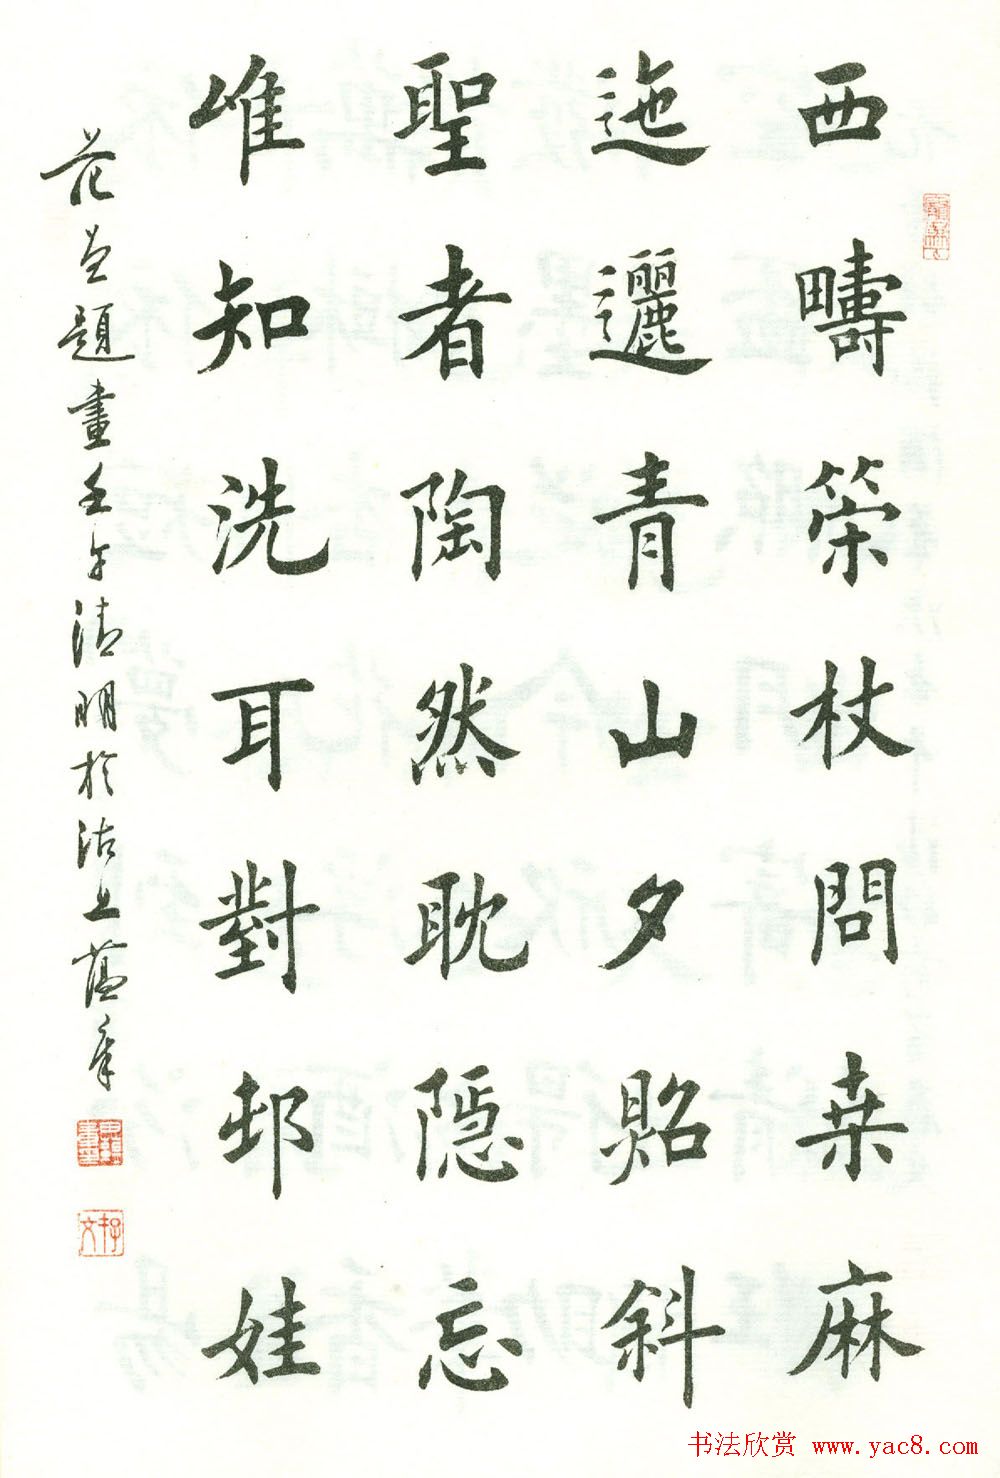 西疇筞杖問桒麻
迆邐青山夕照斜
聖者陶然耽隠忘
唯知洗耳對邨娃
范曾題畫壬午清明於沽上蕴華
书法欣赏 www.yac8.com